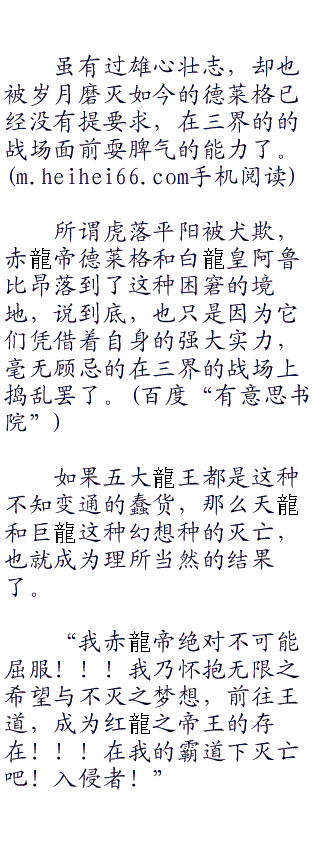 虽有过雄心壮志，却也
被岁月磨灭如今的德莱格已
经没有提要求，在三界的的
战场面前耍脾气的能力了。
(m.heihei66.com手机阅读)
所谓虎落平阳被犬欺，
赤龍帝德莱格和白龍皇阿鲁
比昂落到了这种困窘的境
地，说到底，也只是因为它
们凭借着自身的强大实力，
毫无顾忌的在三界的战场上
捣乱罢了。(百度“有意思书
院”)
如果五大龍王都是这种
不知变通的蠢货，那么天龍
和巨龍这种幻想种的灭亡，
也就成为理所当然的结果
了。
“我赤龍帝绝对不可能
屈服！！！我乃怀抱无限之
希望与不灭之梦想，前往王
道，成为红龍之帝王的存
在！！！在我的霸道下灭亡
吧！入侵者！”